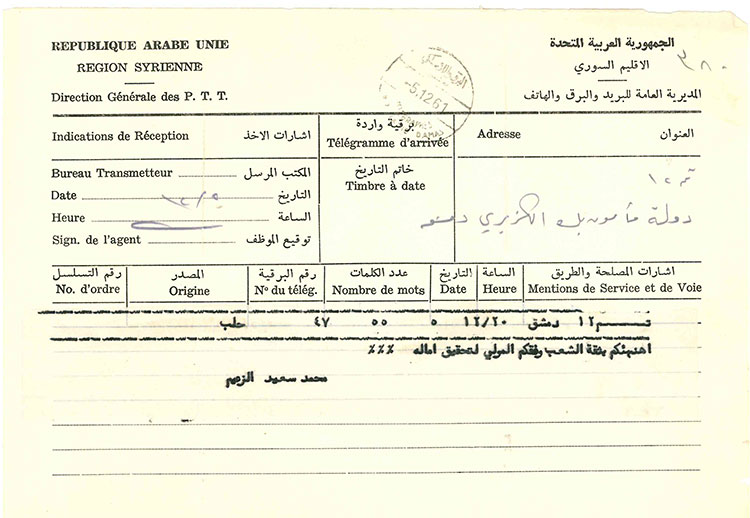 REPUBLIQUE ARABE UNIE
REGION SYRIENNE
Direction Générale des P. T. T.
الجمهورية العربية المتحدة
الاقليم السوري
٣٨٠
المديرية العامة للبريد والبرق والهاتف
5.12.61
Indications de Réception اشارات الاخذ
برقية واردة
Télégramme d'arrivée
Adresse العنوان
Bureau Transmetteur المكتب المرسل
Date التاريخ
Heure الساعة
Sign. de l'agent توقيع الموظف
خاتم التاريخ
Timbre à date
دولة مأمون بك الكزبري دمشق
رقم التسلسل
No. d'ordre
المصدر
Origine
رقم البرقية
N° du télég.
عدد الكلمات
Nombre de mots
التاريخ
Date
الساعة
Heure
اشارات المصلحة والطريق
Mentions de Service et de Voie
١٢ دمشق ١٢/٢٠ ٥ ٥٥ ٤٧ حلب
اهنئكم بثقة الشعب وفقكم المولي لتحقيق اماله ٪٪٪
محمد سعيد الزعيم